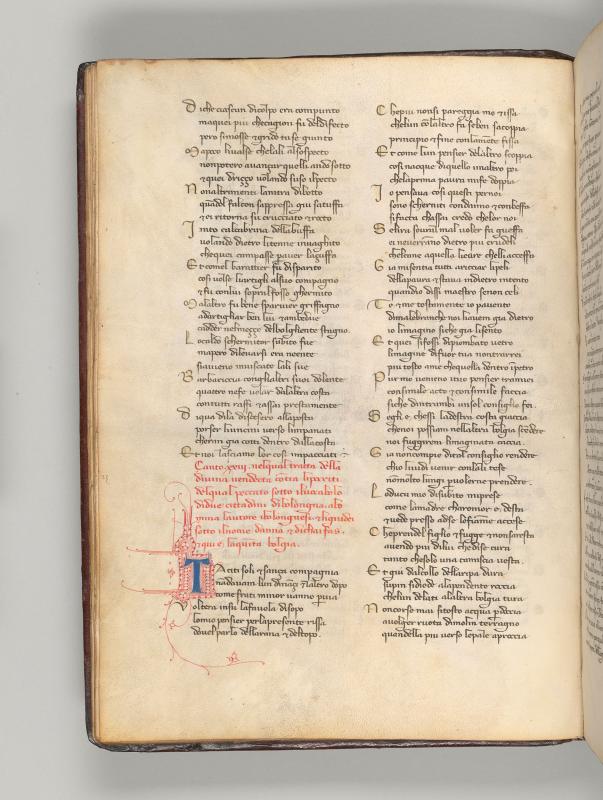 Di che ciascun dicolpo era compunto
ma quei piu che cagion fu deldifecto
pero simosse & grido tu se giunto
Ma poco livalse chelali alsospecto
non potero avançar quelli ando sotto
& quei driçço volando suso ilpecto
Non altrimenti lanitra dibotto
quādol falcon sappressa giu satuffa
& ei ritorna su crucciato & rocto
Irato calcabrina dellabuffa
volando dietro litenne invaghito
che quei campasse paver laçuffa
Et comel barattier fu disparito
cosi volse liartigli alsuo compagno
& fu conlui soprilfosso ghermito
Ma laltro fu bene sparvier grifagno
adartigliar ben lui & ambedue
cadder nel meçço delbogliente stagno
Lo caldo schermitor subito fue
ma pero dilevarsi era neente
si avieno inviscate lali sue
Barbariccia conglialtri suoi dolente
quattro nefe volar dallaltra costa
contutti raffi & assai prestamente
Di qua dila disceser allaposta
porser liuncini verso limpaniati
cheran gia cotti dentro dallacosta
Et noi lasciamo lor cosi impacciati
Canto .xxiii. nelqual tratta della
divina vendecta cōtra lipocriti
delqual peccato sotto ilvocabolo
di due cittadini dibologna
sotto ilnome danna & dichaifas.
& qui e laquita bolgia.
Taciti soli & sança compagnia
nādavam lun dināçi & laltro dopo
come frati minor vanno p via
Volto era insu lafavola disopo
lomio pensier perlapresente rissa
dovel parlo dellarana & deltopo.
Che piu nonsi pareggia mo & issa
chelun collaltro fa seben sacoppia
principio & fine conlamēte fissa
Et come lun pensier dellaltro scoppia
cosi nacque diquello unaltro poi
chelaprima paura mife doppia
Io pensava cosi questi pernoi
sono scherniti condanno & conbeffa
sifacta chassai credo chelor noi
Se lira sovral mal voler fa gueffa
ei neverāno dietro piu crudeli
chelcane aquella lievre chelli acceffa
Gia misentia tutti arricciar lipeli
dellapaura & stava indietro intento
quandio dissi maestro senon celi
Te & me tostamente io pavento
dimalebranche noi liavem gia dietro
io limagino siche gia lisento
Et quei sifossi dipiombato vetro
limagine difuor tua nontrarrei
piu tosto ame chequella dentro ipetro
Pur mo venieno ituo pensier tramiei
consimile acto & consimile faccia
siche dintrambi unsol consiglio fei.
Segli e chessi ladestra costa giaccia
chenoi possiam nellaltra bolgia scēdere
noi fuggirem limaginata caccia.
Gia noncompie dital consiglio rendere
chio lividi venir conlali tese
nōmolto lungi pvolerne prendere.
Loduca mio disubito miprese
come lamadre charomor e desta
& vede presso adse lefiamme accese
Che prendel figlio & fugge & nonsaresta
avendo piu dilui chedise cura
tanto chesolo una camiscia vesta.
Et giu dalcollo dellaripa dura
supin sidiede alapendente roccia
chelun delati alaltra bolgia tura
Non corse mai sitosto acqua p doccia
avolger ruota dimolin terragno
quandella piu verso lepale aproccia